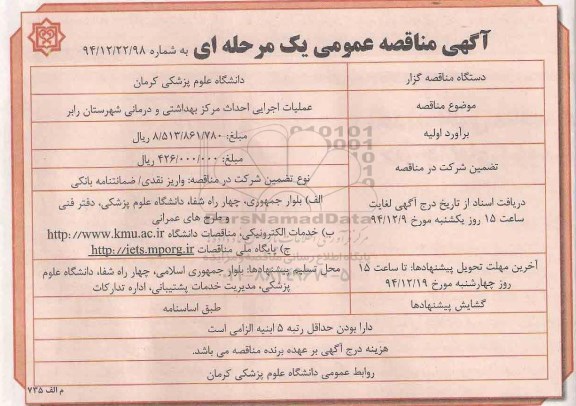 آگهی مناقصه عمومی یک مرحله ای به شماره ۹۴/۱۲/۲۲/۹۸
دستگاه مناقصه گزار
دانشگاه علوم پزشکی کرمان
موضوع مناقصه
عملیات اجرایی احداث مرکز بهداشتی و درمانی شهرستان رابر
برآورد اولیه
مبلغ: ۸/۵۱۳/۸۶۱/۷۸۰ ریال
تضمین شرکت در مناقصه
مبلغ: ۴۲۶/۰۰۰/۰۰۰ ریال
نوع تضمین شرکت در مناقصه: واریز نقدی/ ضمانتنامه بانکی
دریافت اسناد از تاریخ درج آگهی لغایت
ساعت ۱۵ روز یکشنبه مورخ ۹۴/۱۲/۹
الف) بلوار جمهوری، چهار راه شفا، دانشگاه علوم پزشکی، دفتر فنی
و طرح های عمرانی
ب) خدمات الکترونیکی: مناقصات دانشگاه http://www.kmu.ac.ir
ج) پایگاه ملی مناقصات http://iets.mporg.ir
آخرین مهلت تحویل پیشنهادها: تا ساعت ۱۵
روز چهارشنبه مورخ ۹۴/۱۲/۱۹
محل تسلیم پیشنهادها: بلوار جمهوری اسلامی، چهار راه شفا، دانشگاه علوم
پزشکی، مدیریت خدمات پشتیبانی، اداره تدارکات
گشایش پیشنهادها
طبق اساسنامه
دارا بودن حداقل رتبه ۵ ابنیه الزامی است
هزینه درج آگهی بر عهده برنده مناقصه می باشد.
روابط عمومی دانشگاه علوم پزشکی کرمان
م الف ۷۳۵
ParsNamadData